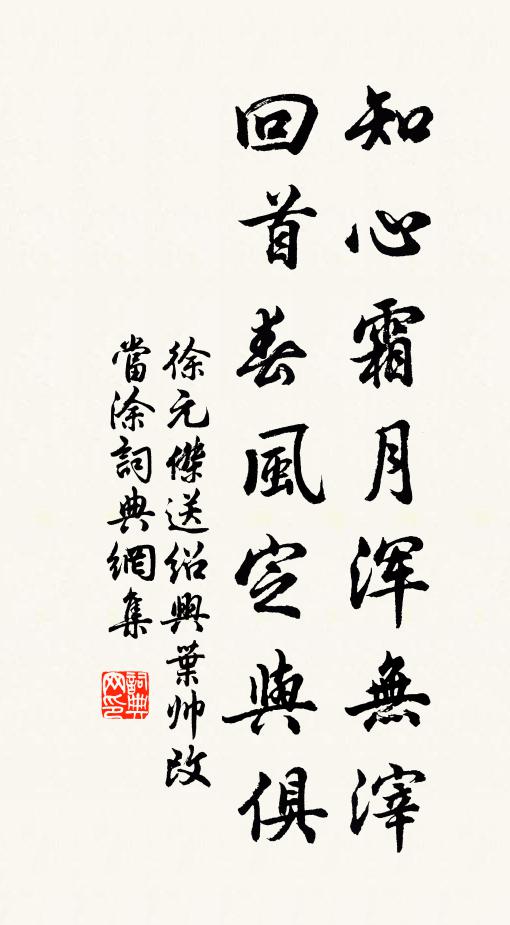 知心霜月浑無滓
回首春風定與俱
徐元傑送紹興葉帅改
當涂詞典網集
詞典网印